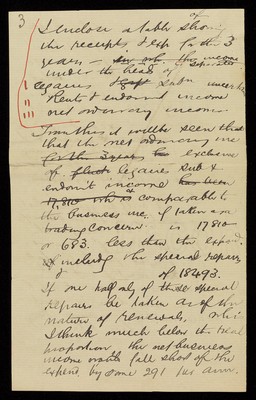 3
I enclose a table show of
the receipts & exp for the 3
years — this income
under the head of
I legacies & Subs
II Rents & endow't income
III net ordinary income
From this it will be seen that
that the net ordinary inc
for the 3 years exclusive
of legacies subs &
endow't income has been
17,810 wh is comparable to
the business inc. if taken as a
trading concern is 17810
or 683. less than the expend.
including the special repairs
of 18493.
If one half only of these special
repairs be taken as of the
nature of renewals, wh
I think much below the real
proportion the net business
income would fall short of the
expend by some 291 per ann.